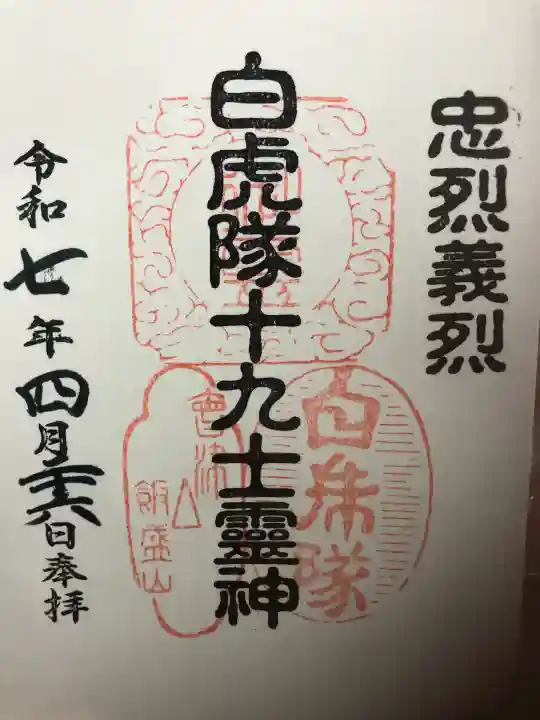 忠烈義烈
白虎隊十九士靈神
白虎隊
會津
飯盛山
令和七年四月二十六日奉拝